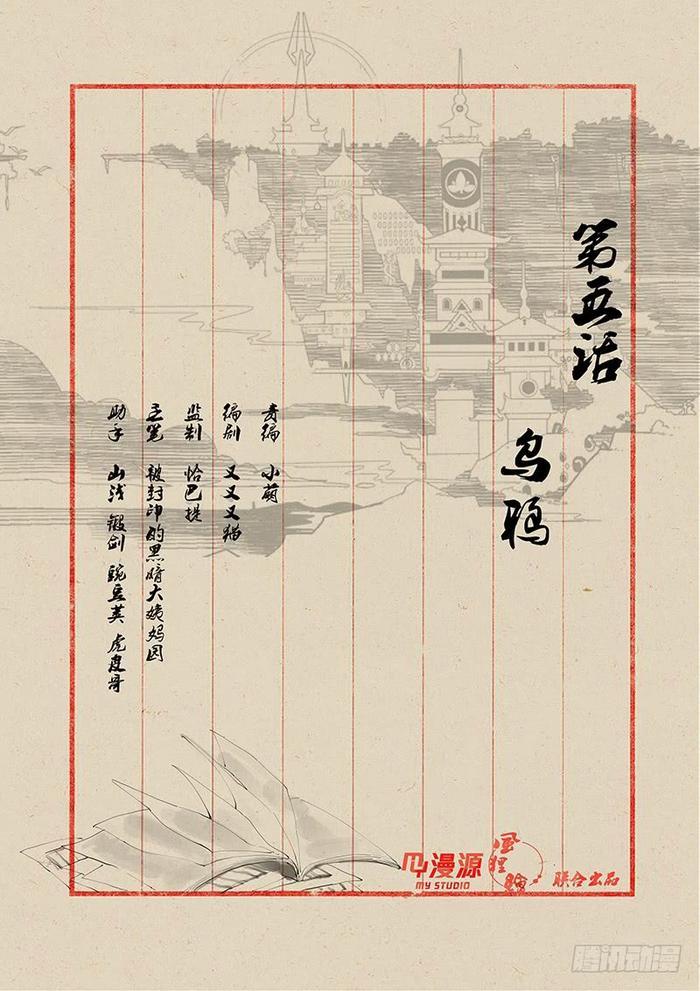 第五话
乌鸦
责编 小萌
编剧 又又又猫
监制 恰巴提
主笔 被封印的黑暗大姨妈囧
助手 山浅 锻剑 豌豆荚 虎皮哥
漫源
MY STUDIO
联合出品
腾讯动漫